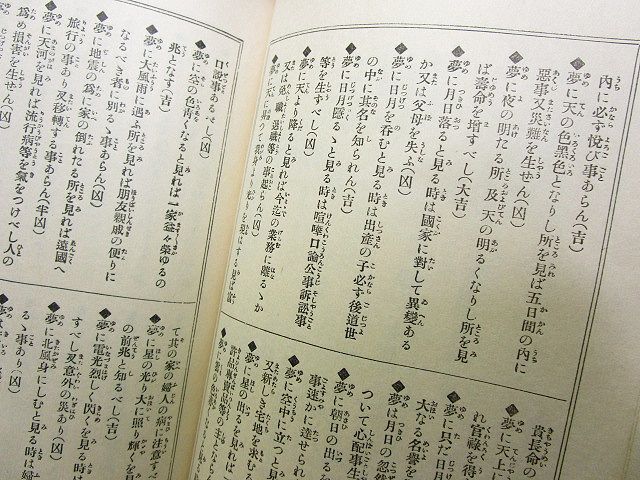 内に必ず悦び事あらん(吉)
◆夢に天の色黒色となりし所を見れば五日間の内に
惡事又災難を生せん(凶)
◆夢に夜の明たる所及天の明るくなりし所を見
ば壽命を増すべし(大吉)
◆夢に月日落ると見る時は國家に對して異變ある
か又は父母を失ふ(凶)
◆夢に日月を呑むと見る時は出産の子必ず後道世
の中に其名を知られん(吉)
◆夢に日月隠るゝと見る時は喧嘩口論公事訴訟事
等を生ずべし(凶)
◆夢に天より降ると見れば今迄の業務に離るゝか
又は免職退職等の事起らん(凶)
貴長命の
◆夢に天上に
れ官祿を得
◆夢に只だ日月
大なる名譽を
◆夢は月日の忽然
ついて心配事生
◆夢に朝日の出る
事速かに達せられ
◆夢に空中に立つと見
又新しき宅地を求むる
◆夢に星の出るを見れば
口説事あるべし(凶)
◆夢に空の色靑くなると見れば一家益々榮ゆるの
兆となす(吉)
◆夢に大風雨に遇ふ所を見れば朋友親戚の便りに
なるべき者に別るゝ事あらん(凶)
◆夢に地震の爲に家の倒れたる所を見れば遠國へ
旅行の事あり又移轉する事あらん(半凶)
◆夢に天河を見れば流行病等を氣をつけべし人の
爲め損害を生せん(凶)
て其の家の婦人の病に注意すべ
◆夢に星の光り大に照り輝くを見
の前兆と知るべし(吉)
◆夢に電光烈しく閃くを見る時は
すべし又意外の災あり(凶)
◆夢に北風身にしむと見る時は婦
るゝ事あり(凶)